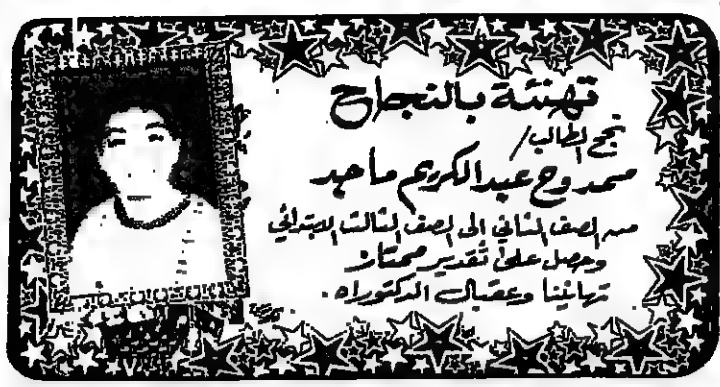 تهنئة بالنجاح
نجح الطالب/
ممدوح عبدالكريم ماجد
من الصف الثاني الى الصف الثالث الابتدائي
وحصل على تقدير ممتاز
تهانينا وعقبال الدكتوراه.